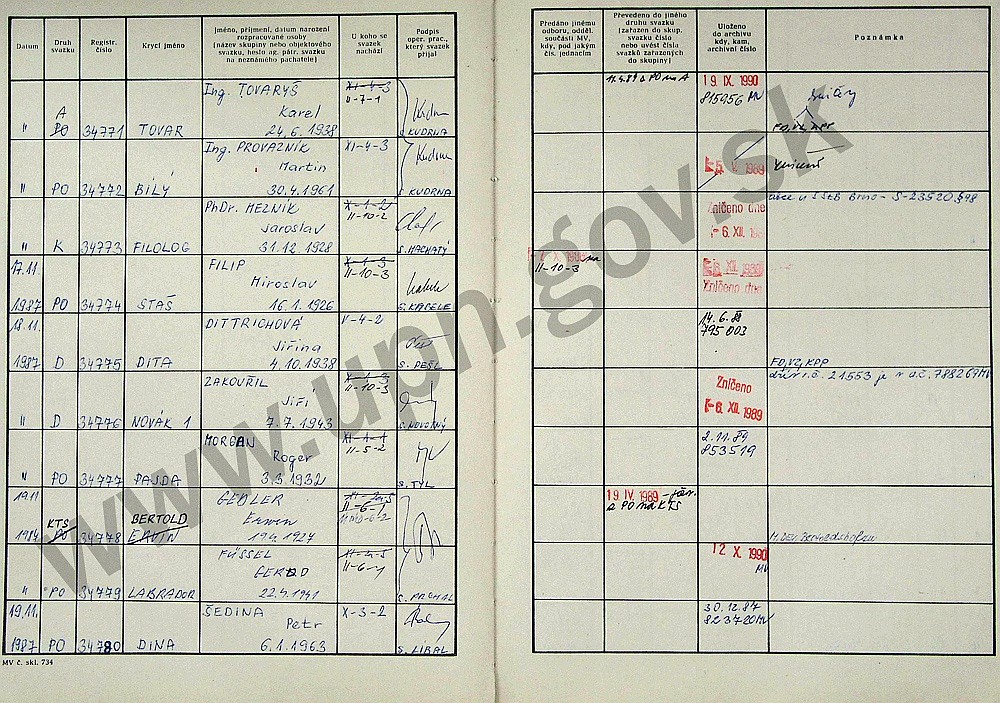 Datum
Druh svazku
Registr. číslo
Krycí jméno
Jméno, příjmení, datum narození
rozpracované osoby
(název skupiny nebo objektového
svazku, heslo ag. pátr. svazku
na neznámého pachatele)
U koho se
svazek
nachází
Podpis
oper. prac.,
který svazek
přijal
Předáno jinému
odboru, odděl.
součásti MV,
kdy, pod jakým
čís. jednacím
Převedeno do jiného
druhu svazku
(zařazen do skup.
svazku číslo
nebo uvést čísla
svazků zařazených
do skupiny)
Uloženo
do archivu
kdy, kam,
archivní číslo
Poznámka
Ing. TOVARYŠ XI-4-3
A Karel II-7-1
" PO 34771 TOVAR 24.6.1938 KUDRNA
19. IX. 1990
815956 MV
Ing. PROVAZNÍK XI-4-3
Martin
" PO 34772 BÍLÝ 30.4.1961 S. KUDRNA
1989
PhDr. MEZNÍK X-1-2
Jaroslav II-10-2
" K 34773 FILOLOG 31.12.1928 S. MACHATÝ
Zničeno dne
- 6. XII.
S StB Brno - S-23520
17.11. FILIP X-1-3
Miroslav II-10-3
1987 PO 34774 STAŠ 16.1.1926 S. KABELE
X. 1988
II-10-3
Zničeno dne
18.11. DITTRICHOVÁ V-4-2
Jiřina
1987 D 34775 DITA 4.10.1938 S. PEŠL
14.6.88
795003
FO, VZ, KPP
ZAKOUŘIL X-1-3
Jiří II-10-3
" D 34776 NOVÁK 1 7.7.1943 S. NOVOTNÝ
Zničeno
- 6. XII. 1989
21553 je v a.č. 788269 MV
MORGAN XI-1-1
Roger II-5-2
" PO 34777 PAJDA 3.3.1932 S. TYL
2.11.89
853519
19.11. GEDLER
KTS BERTOLD Erwin II-6-1
PO 34778 ERVIN 19.4.1927
19. IV. 1989
z PO na KTS
FÜSSEL XI-4-5
GEROD II-6-1
" PO 34779 LABRADOR 22.4.1941
12. X. 1990
MV
19.11. ŠEDINA X-3-2
Petr
1987 PO 34780 DINA 6.1.1963 S. LIBAL
30.12.87
823720 MV
MV č. skl. 734
www.upn.gov.sk